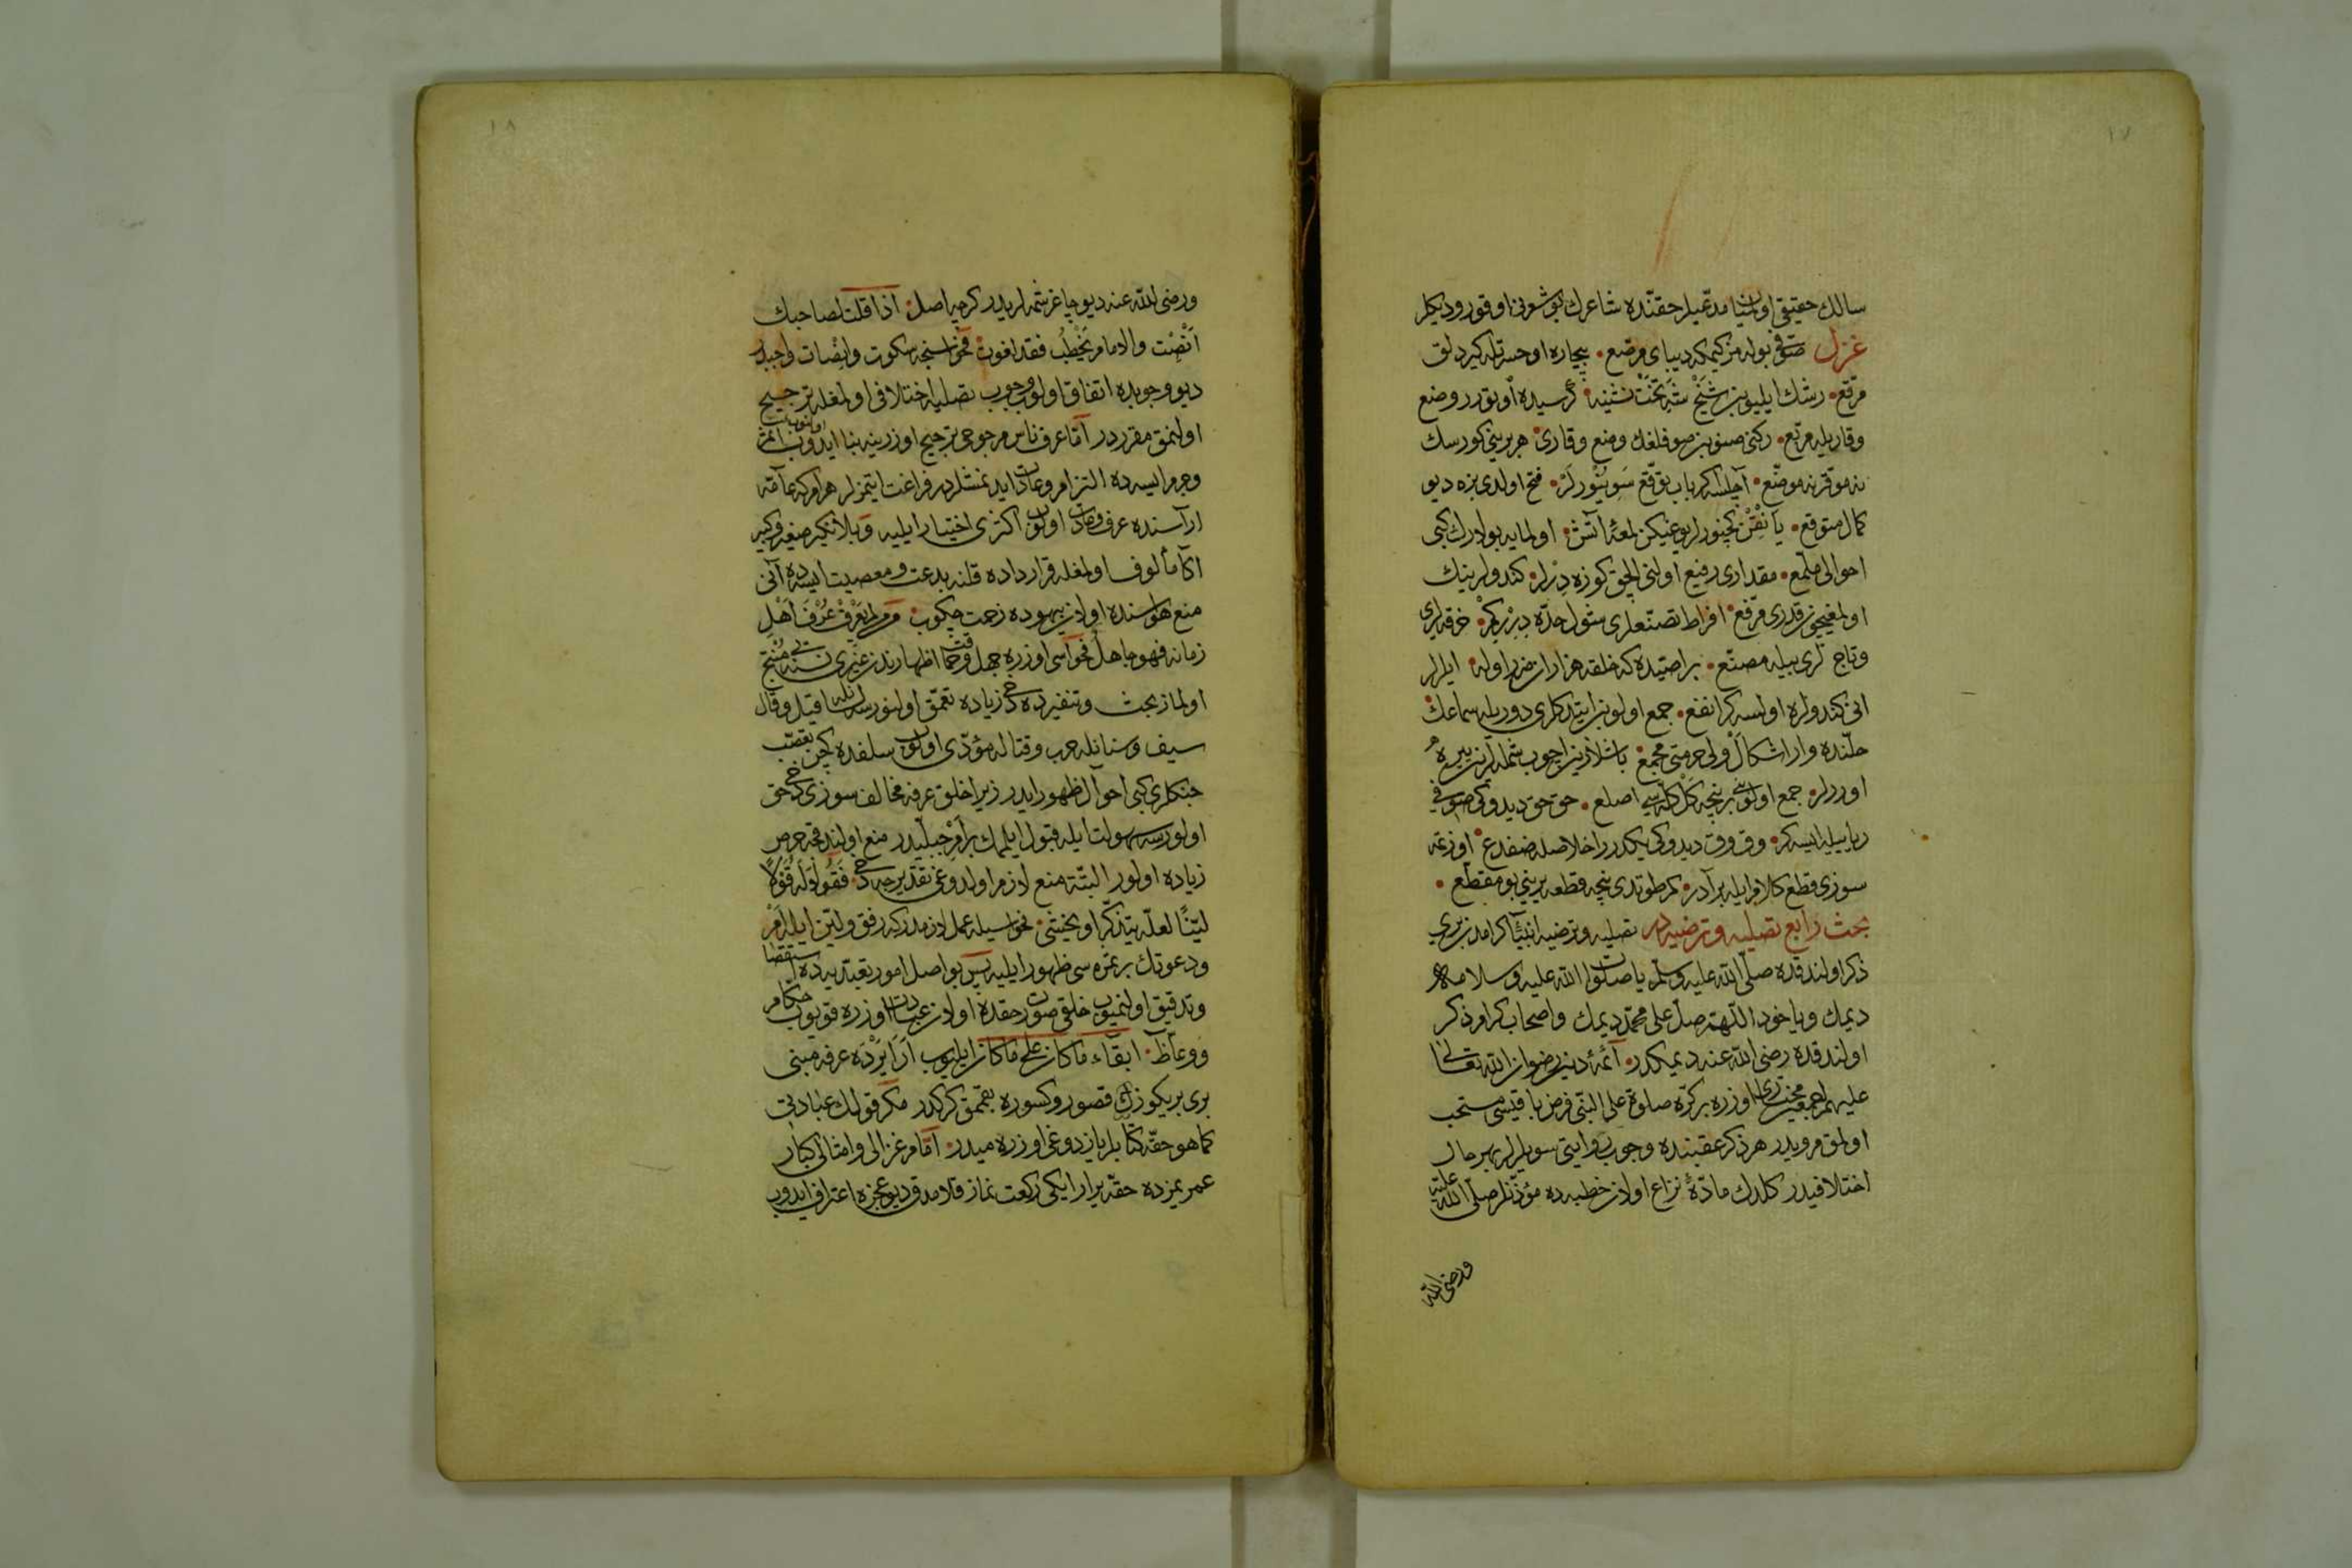 ١٧
سالك حقیقی اولمیان مدعیلر حقنده شاعرك بو شعرنی اوقور و دیكلر
غزل صوفی بوله مز كیمكه دیبای مرصع بیچاره اوحسرتله كیر دلق
مرقع رشك ایلیوبن شیخ شه تخت نشینه كرسیده اوتورر وضع
وقاریله مربع صوفلغك وضع وقاری هر برینی كورسك
نه موقر نه موضع آچلسه كر باب توقع فتح اولدی بزه دیو
كمال متوقع لمعهٔ آتش اولمایه بولارك كبی
احوالی ملمع مقداری رفیع اولنی كندولرینك
اولمغیچون قدری مرفع افراط تصنعلری شول حده خرقه لری
وتاج لری بیله مصنع خلقه هزاران ضرر اوله ایلرلر
انی كندولره اولسه كر انفع جمع اولوبن ایتدكلری دوریله سماعك
حلنده وار اشكال ولی حرمتی مجمع
اوررلر جمع اولوشی بر نیچه كل كله سی اصلع حق حق دیدوكی صوفی
ریاییله ایسه كر وق وق دیدوكی یكدر اخلاصله ضفدع اوزتمه
سوزی قطع كلام ایله برادر طوتدی نیچه قطعه یرینی بو مقطع
بحث رابع تصلیه وترضیه در تصلیه وترضیه انبیا كرامدن بری
ذكر اولندقده صلی الله علیه وسلم یا صلوات الله علیه وسلامه
دیمك ویاخود اللهم صل علی محمد دیمك واصحاب كرام ذكر
اولندقده رضی الله عنه دیمكدر ائمهٔ دین رضوان الله تعالی
علیهم اجمعین اوزره بر كره صلوة علی النبی فرض باقیسی مستحب
اولمق مرویدر هر ذكر عقبنده وجوب روایتی سویلرلر بهر حال
اختلافیدر كلدك مادهٔ نزاع اولان خطبه ده مؤذنلر صلی الله علیه
ورضی الله
١٨
ورضی الله عنه دیو چاغرشمه لریدر كرچه اصل اذا قلت لصاحبك
انصت والامام یخطب فقد لغوت فحواسنجه سكوت وانصات واجبدر
دیو وجوبده اتفاق اولوب وجوب تصلیه اختلافی اولمغله ترجیح
اولنمق مقرردر اما عرف ناس مرجوحی ترجیح اوزرینه بنا ایدوب
وجرم ایسه ده التزام وعادت ایدنمشلردر فراغت ایتمزلر هر امر كه عامه
آراسنده عرف وعادت اولوب اكثری اختیار ایلیه وبلا نكیر صغیر وكبیر
اكا مألوف اولمغله قرارداده قلنه بدعت ومعصیت ایسه ده آنی
منع هواسنده اولان بیهوده زحمت چكوب من لم یعرف عرف اهل
زمانه فهو جاهل فحواسی اوزره جهل وحماقت اظهارندن غیری نسنه یی منتج
اولماز بحث وتنفیرده دخی زیاده تعمق اولنورسه قیل وقال
سیف وسنانله حرب وقتاله مؤدی اولوب سلفده كچن تعصب
جنكلری كبی احوال ظهور ایدر زیرا خلق عرفه مخالف سوزی دخی حق
اولورسه سهولت ایله قبول ایلمك بر امر جبلیدر منع اولندقجه حرص
زیاده اولور البته منع لازم اولدوغی تقدیرجه دخی فقولا له قولا
لینا لعله یتذكر او یخشی فحواسیله عمل لازمدر كه رفق ولین ایله امر
ودعوتك بر ثمره سی ظهور ایلیه پس بو اصل امور تعبدیه ده استقصا
وتدقیق اولنمیوب خلقی صورت حقده اولان عبادت اوزره قویوب حكام
ووعاظ ابقاء ما كان علی ما كان ایلیوب عرفه مبنی
بری برینك قصور وكسوره تعمق كركدر مكر قولك عبادتی
كما هو حقه كتابلر یازدوغی اوزره میدر اما غزالی وامثالی كبار
عمریمزده حقه یرار ایكی ركعت نماز قلامدق دیو عجزه اعتراف ایدوب